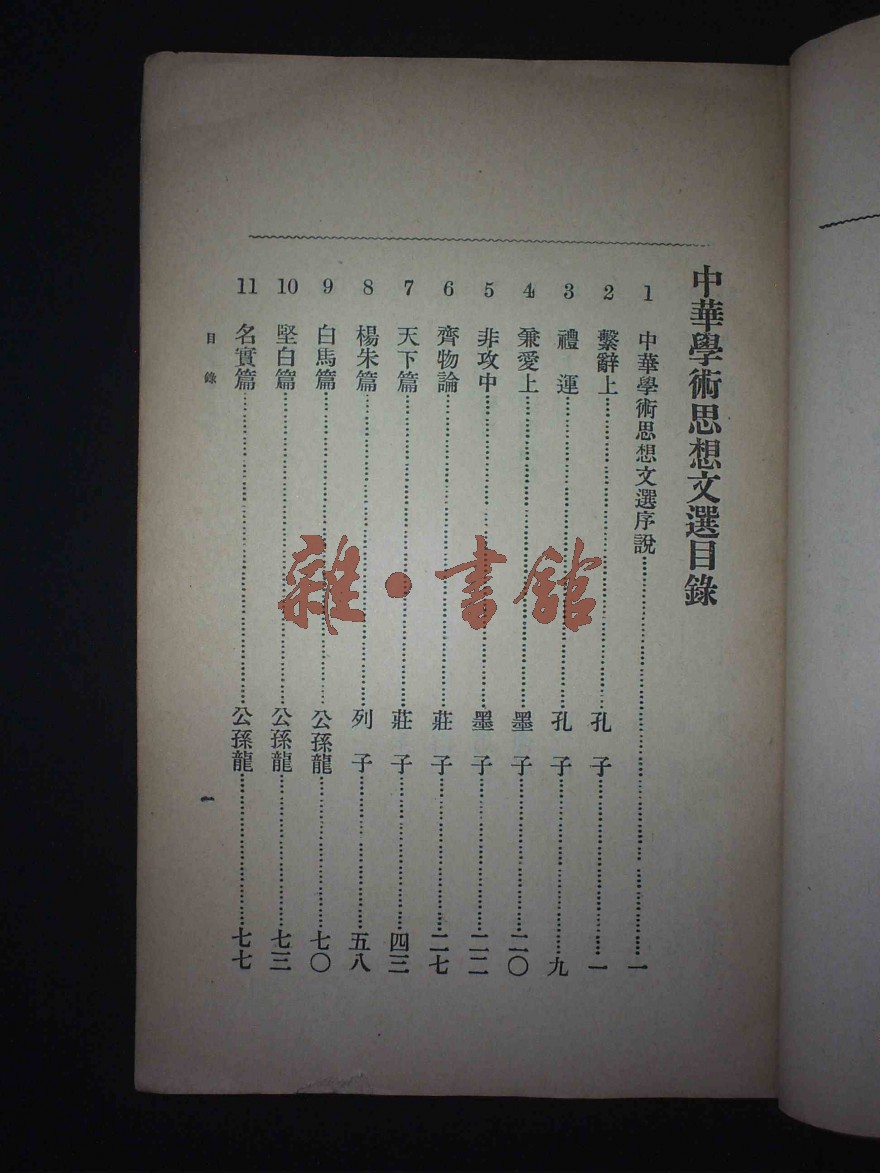 中華學術思想文選目錄
1 中華學術思想文選序說……一
2 繫辭上……孔 子……一
3 禮 運……孔 子……九
4 兼愛上……墨 子……二〇
5 非攻中……墨 子……二二
6 齊物論……莊 子……二七
7 天下篇……莊 子……四三
8 楊朱篇……列 子……五八
9 白馬篇……公孫龍……七〇
10 堅白篇……公孫龍……七三
11 名實篇……公孫龍……七七
目 錄
一
雜·書館